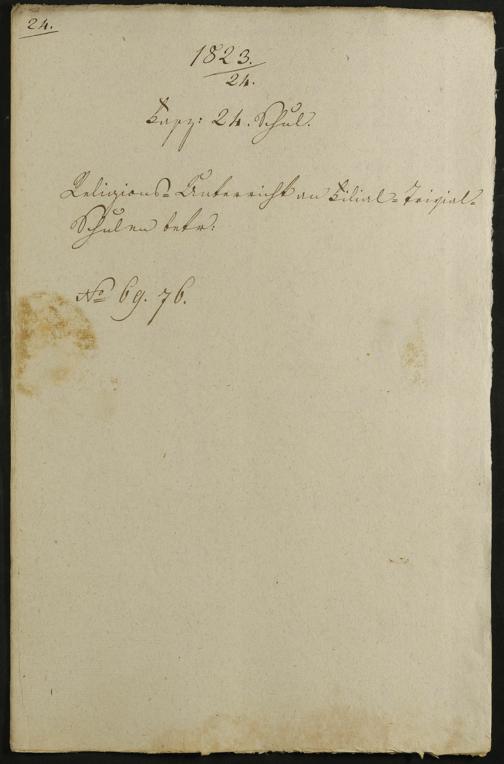 24.
1823.
24.
Fasz: 24. Schul.
Religions-Unterricht an Filial-Trivial-
Schulen betr:
No 69. 76.